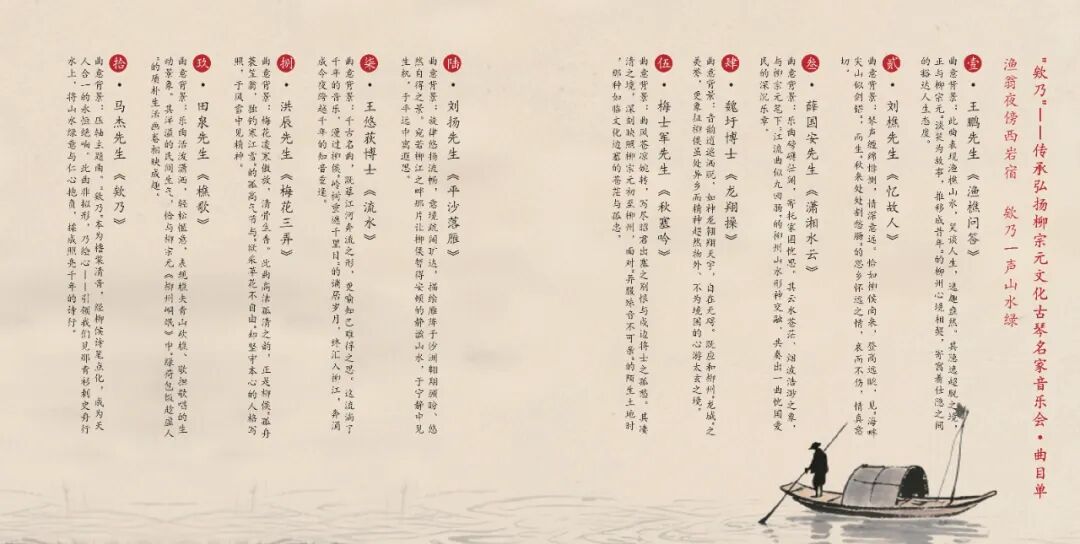 “欸乃”——传承弘扬柳宗元文化古琴名家音乐会·曲目单
渔翁夜傍西岩宿 欸乃一声山水绿
壹·王鹏先生《渔樵问答》
曲意背景：此曲表现渔樵山水，笑谈人生，逸趣盎然。其隐逸超脱之境，
正与柳宗元“淡装为故事，推移成昔年”的柳州心境相契，寄寓着仕隐之间
的豁达人生态度。
贰·刘樵先生《忆故人》
曲意背景：琴声缠绵悱恻，情深意远。恰如柳侯南来，登高远眺，见“海畔
尖山似剑铓”，而生“秋来处处割愁肠”的思乡怀远之情，哀而不伤，情真意
切。
叁·薛国安先生《潇湘水云》
曲意背景：乐曲磅礴茫阔，寄托家国忧思。其云水苍茫、烟波浩渺之象，
与柳宗元笔下“江流曲似九回肠”的柳州山水形神交融，共奏出一曲忧国爱
民的深沉乐章。
肆·魏圩博士《龙翔操》
曲意背景：音韵逍遥洒脱，如神龙翱翔天宇，自在无碍。既应和柳州“龙城”之
美誉，更象征柳侯虽处异乡而精神超然物外、不为境囿的心游太玄之境。
伍·梅士军先生《秋塞吟》
曲意背景：曲风苍凉婉转，写尽昭君出塞之别恨与戍边将士之孤愁。其凄
清之境，深刻映照柳宗元初至柳州，面对“异服殊音不可亲”的陌生土地时
，那种如临文化边塞的苍茫与孤忠。
陆·刘扬先生《平沙落雁》
曲意背景：旋律悠扬流畅，意境疏阔旷达，描绘雁阵于沙洲翱翔顾盼、悠
然自得之景。宛若柳江之畔那片让柳侯暂得安顿的静谧山水，于宁静中见
生机，于平远中寓遐思。
柒·王悠荻博士《流水》
曲意背景：千古名曲，既摹江河奔流之形，更喻知己难得之思。这流淌了
千年的音乐，漫过柳侯“岭树重遮千里目”的谪居岁月，终汇入柳江，奔涌
成今夜跨越千年的知音重逢。
捌·洪辰先生《梅花三弄》
曲意背景：梅花凌寒傲放，清骨生香。此曲高洁孤清之韵，正是柳侯“孤舟
蓑笠翁，独钓寒江雪”的孤高气节与“欲采蘋花不自由”和坚守本心的人格写
照，于风雪中见精神。
玖·田泉先生《樵歌》
曲意背景：乐曲活泼潇洒，轻松惬意，表现樵夫青山砍樵、歌担歌唱的生
动景象。其洋溢的民间生气，恰与柳宗元《柳州峒氓》中“绿荷包饭趁虚人
”的质朴生活画卷相映成趣。
拾·马杰先生《欸乃》
曲意背景：压轴主题曲。“欸乃”，本为橹桨清音，经柳侯诗笔点化，成为天
人合一的永恒绝响。此曲非拟形，乃绘心——引领我们见那青衫刺史舟行
水上，将山水绿意与仁心抱负，揉成照亮千年的诗行